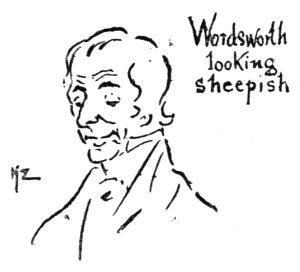 Wordsworth
looking
sheepish